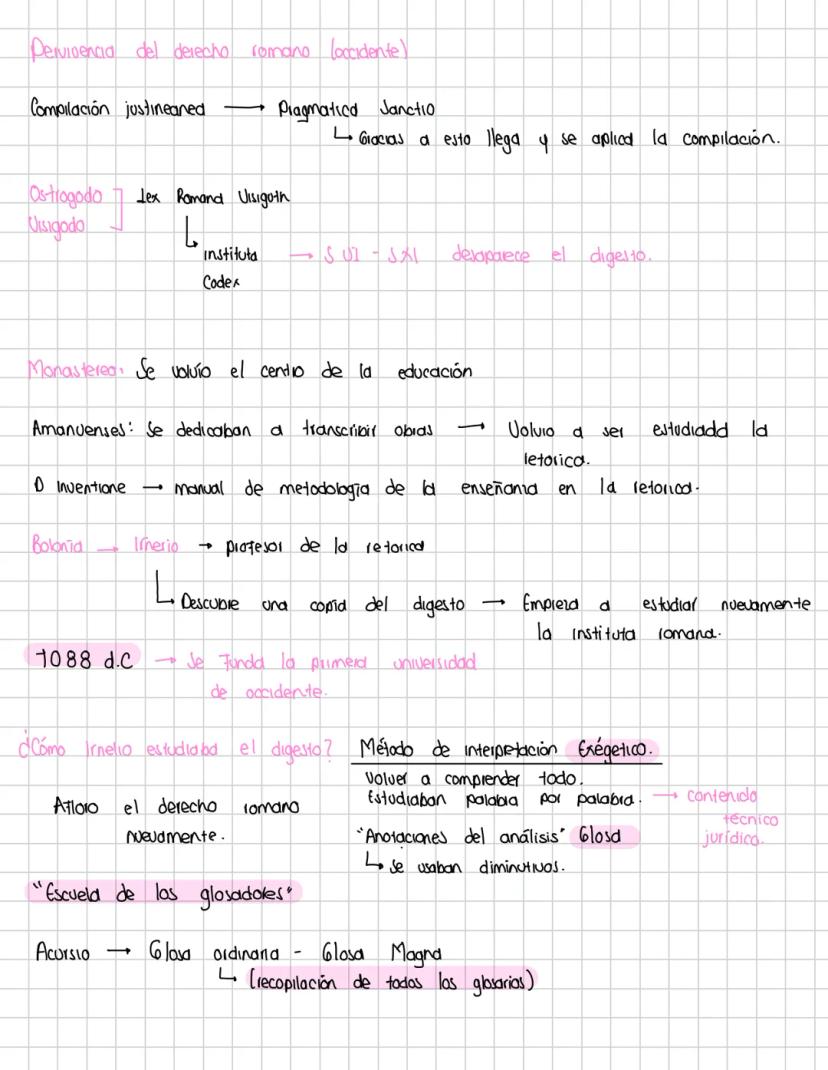 Pervivencia del derecho romano (occidente)
Compilación justineanea → Pragmatica Sanctio
↳ Gracias a esto llega y se aplica la compilación.
Ostrogodo ] Lex Romana Visigoth
Visigodo
↳ instituta → S VI - SXI desaparece el digesto.
Codex
Monasterea: Se volvío el centro de la educación
Amanuenses: Se dedicaban a transcribir obras → Volvio a ser estudiada la
retorica.
D inventione → manual de metodología de la enseñanza en la retorica.
Bolonia → Irnerio → profesor de la retorica
↳ Descubre una copia del digesto → Empieza a estudiar nuevamente
la instituta romana.
1088 d.C → Se funda la primera universidad
de occidente.
¿Cómo Irnerio estudiaba el digesto? Método de interpretación Exégetico.
Volver a comprender todo.
Estudiaban palabra por palabra. → contenido
técnico
jurídico.
Afloro el derecho romano
nuevamente.
"Anotaciones del análisis" Glosa
↳ Se usaban diminutivos.
"Escuela de los glosadores"
Acursio → Glosa ordinaria - Glosa Magna
↳ (recopilación de todos los glosarios)